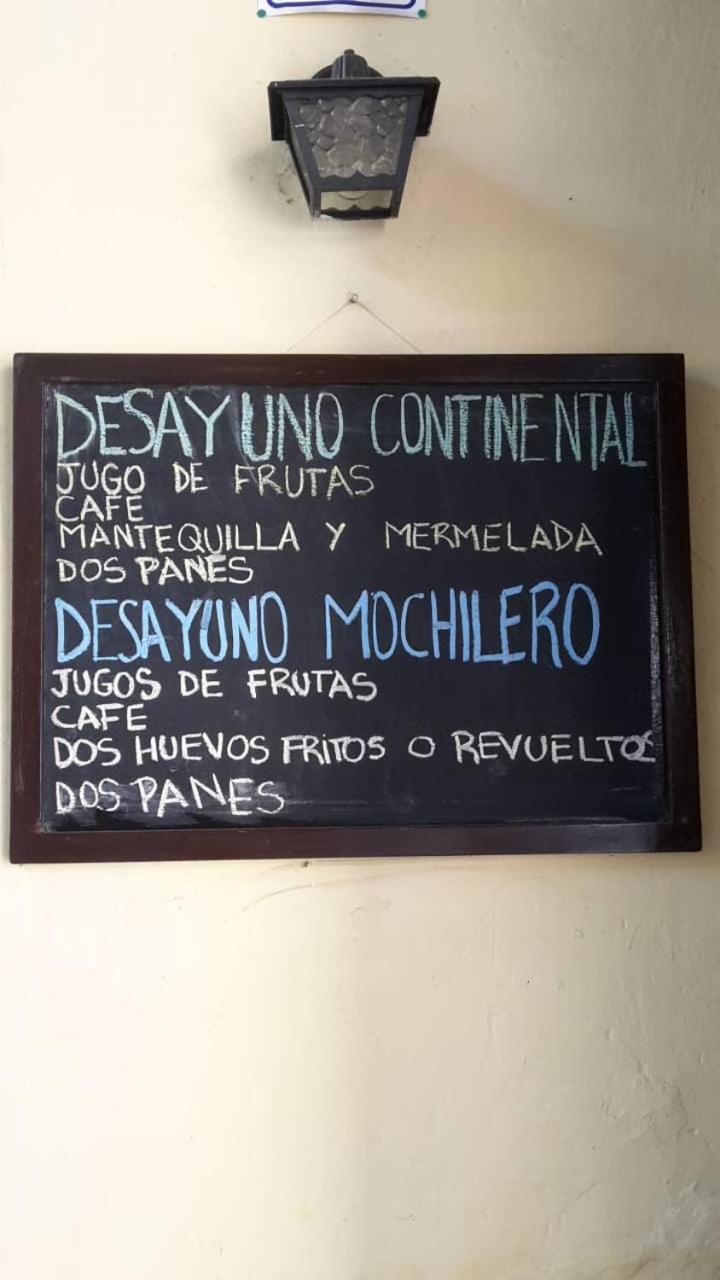 DESAYUNO CONTINENTAL
JUGO DE FRUTAS
CAFE
MANTEQUILLA Y MERMELADA
DOS PANES
DESAYUNO MOCHILERO
JUGOS DE FRUTAS
CAFE
DOS HUEVOS FRITOS O REVUELTOS
DOS PANES